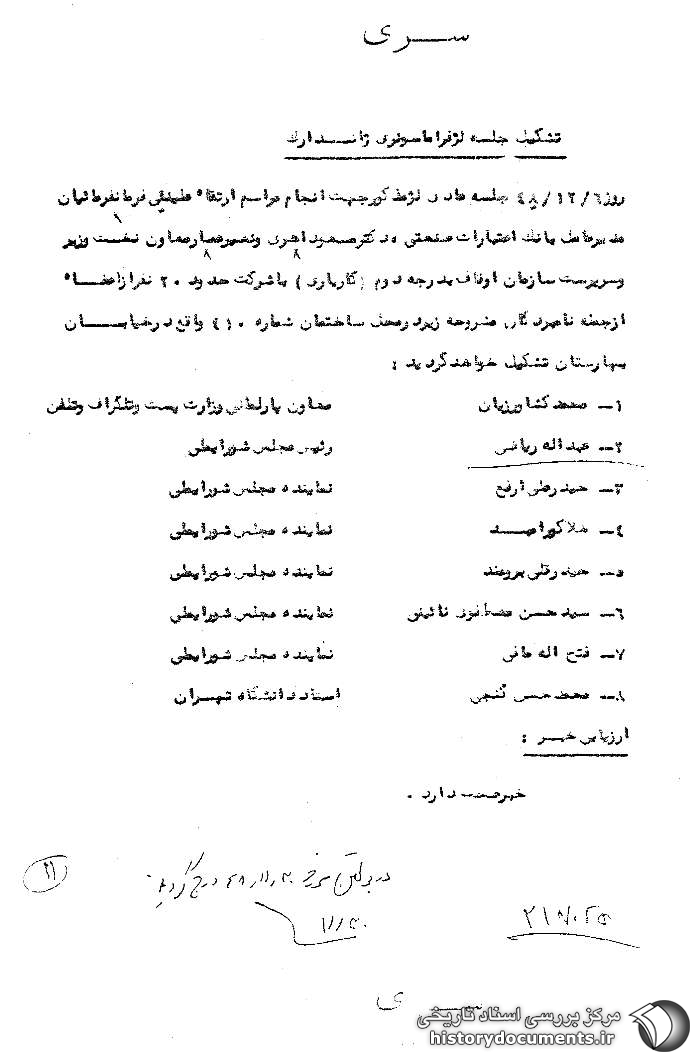 سری
تشکیل جلسه لژ فراماسونری ژاندارک
روز ۴۸/۱۲/۶ جلسه عادی لژ مذکور جهت انجام مراسم ارتقاء علینقی فرمانفرمائیان
مدیر عامل بانک اعتبارات صنعتی، دکتر مسعود اهری و نصیر عصار معاون نخست وزیر
و سرپرست سازمان اوقاف بدرجه دوم (کاریاری) با شرکت حدود ۲۰ نفر از اعضاء
از جمله نامبردگان مشروحه زیر در محل ساختمان شماره ۴۱۰ واقع در خیابان
بهارستان تشکیل خواهد گردید :
۱- محمد کشاورزیان معاون پارلمانی وزارت پست و تلگراف و تلفن
۲- عبداله ریاضی رئیس مجلس شورایملی
۳- حیدرعلی ارفع نماینده مجلس شورایملی
۴- هلاکو رامبد نماینده مجلس شورایملی
۵- حیدرقلی برومند نماینده مجلس شورایملی
۶- سید حسن مصطفوی نائینی نماینده مجلس شورایملی
۷- فتح اله مافی نماینده مجلس شورایملی
۸- محمد حسن گنجی استاد دانشگاه تهران
ارزیابی خبر :
خبر صحت دارد .
در بولتن مورخ ۴۸/۱۱/۳۰ درج گردید
۲۱
۱۱/۳۰
سری
مرکز بررسی اسناد تاریخی
historydocuments.ir